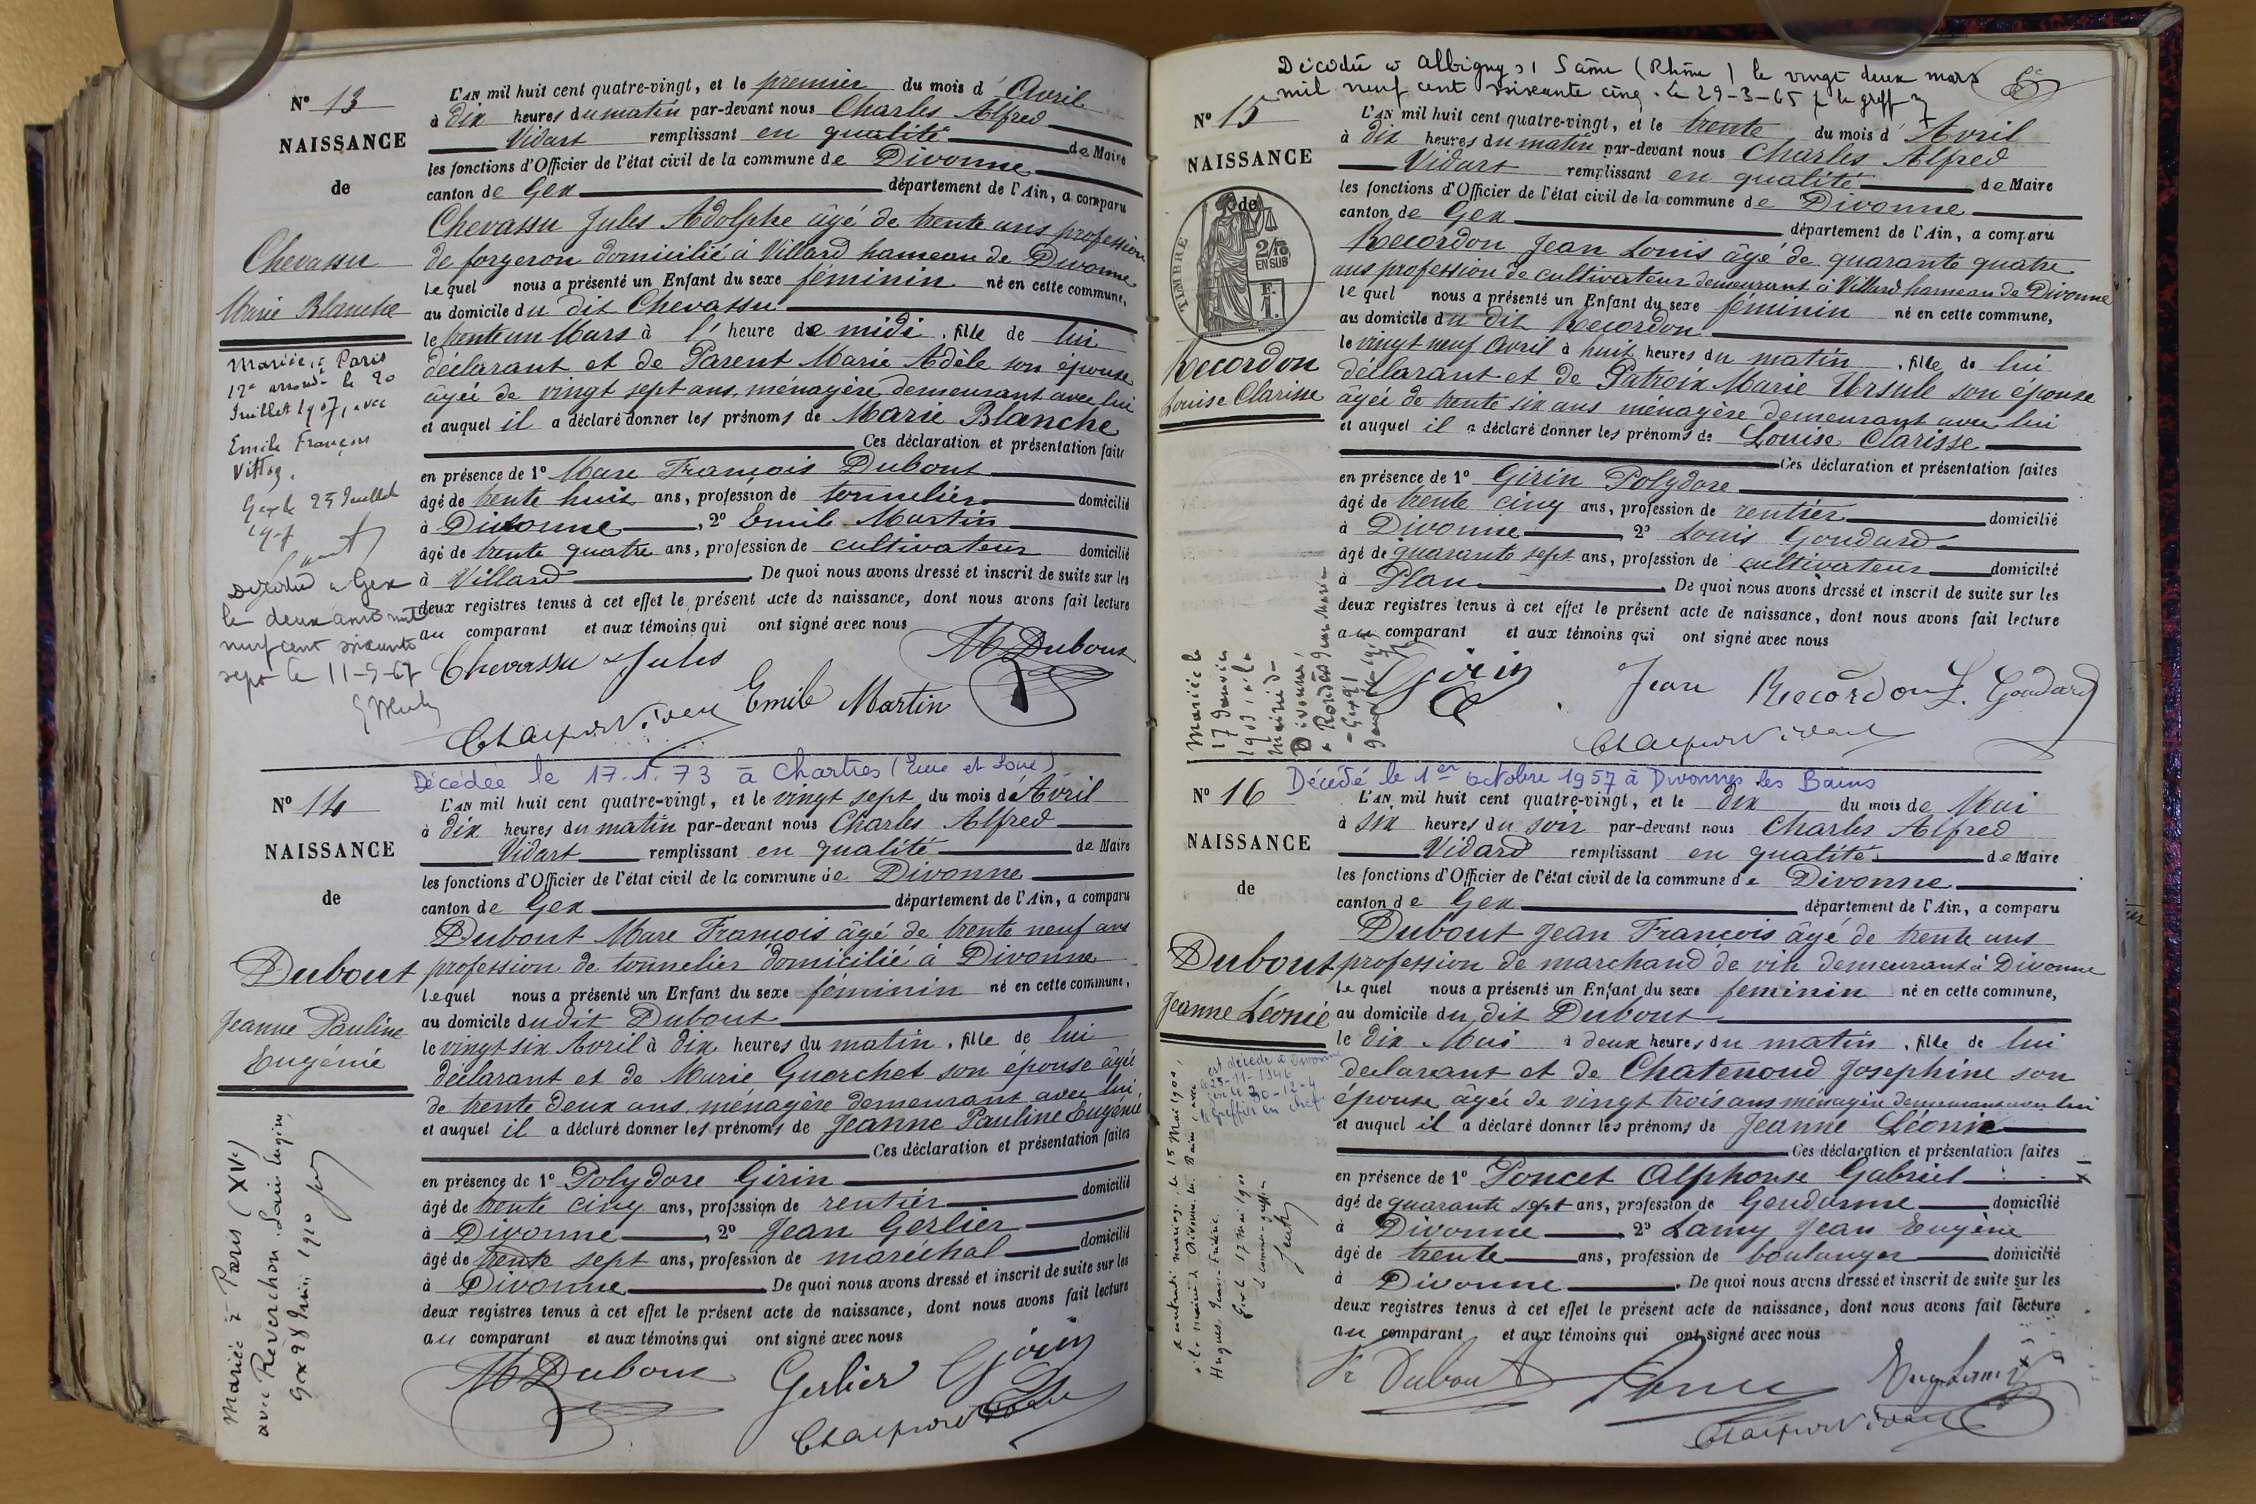 N° 13
NAISSANCE
de
Chevassu
Marie Blanche
Mariée à Paris
12e arrondt le 20
Juillet 1907, avec
Emile François
Gex le 25 Juillet
Décédée à Gex
le deux août mil
neuf cent soixante
sept le 11-9-67
L'AN mil huit cent quatre-vingt, et le premier du mois d'Avril
à dix heures du matin par-devant nous Charles Alfred
Vidart remplissant en qualité de Maire
les fonctions d'Officier de l'état civil de la commune de Divonne
canton de Gex département de l'Ain, a comparu
Chevassu Jules Adolphe âgé de trente ans profession
de forgeron domicilié à Villard hameau de Divonne
lequel nous a présenté un Enfant du sexe féminin né en cette commune,
au domicile du dit Chevassu
le trente un Mars à l'heure de midi, fille de lui
déclarant et de Parent Marie Adèle son épouse
âgée de vingt sept ans, ménagère demeurant avec lui
et auquel il a déclaré donner les prénoms de Marie Blanche
Ces déclaration et présentation faites
en présence de 1° Marc François Dubout
âgé de trente huit ans, profession de tonnelier domicilié
à Divonne, 2° Emile Martin
âgé de trente quatre ans, profession de cultivateur domicilié
à Villard De quoi nous avons dressé et inscrit de suite sur les
deux registres tenus à cet effet le présent acte de naissance, dont nous avons fait lecture
au comparant et aux témoins qui ont signé avec nous
Chevassu Jules M Dubout
Emile Martin
Décédée le 17.1.73 à Chartres (Eure et Loire)
N° 14
NAISSANCE
de
Dubout
Jeanne Pauline
Eugénie
Mariée à Paris (XVe)
avec Reverchon Louis Eugène
Gex 28 Juin 1910
L'AN mil huit cent quatre-vingt, et le vingt sept du mois d'Avril
à dix heures du matin par-devant nous Charles Alfred
Vidart remplissant en qualité de Maire
les fonctions d'Officier de l'état civil de la commune de Divonne
canton de Gex département de l'Ain, a comparu
Dubout Marc François âgé de trente neuf ans
profession de tonnelier domicilié à Divonne
lequel nous a présenté un Enfant du sexe féminin né en cette commune,
au domicile dudit Dubout
le vingt six Avril à dix heures du matin, fille de lui
déclarant et de Marie Guerchet son épouse âgée
de trente deux ans, ménagère demeurant avec lui
et auquel il a déclaré donner les prénoms de Jeanne Pauline Eugénie
Ces déclaration et présentation faites
en présence de 1° Polydore Girin
âgé de trente cinq ans, profession de rentier domicilié
à Divonne, 2° Jean Gerlier
âgé de trente sept ans, profession de maréchal domicilié
à Divonne De quoi nous avons dressé et inscrit de suite sur les
deux registres tenus à cet effet le présent acte de naissance, dont nous avons fait lecture
au comparant et aux témoins qui ont signé avec nous
M Dubout Gerlier Girin
Décédée à Albigny s/ Saône (Rhône) le vingt deux mars
mil neuf cent soixante cinq. Le 29-3-65 le greff
N° 15
NAISSANCE
de
TIMBRE
2/10
EN SUS
Recordon
Louise Clarisse
Mariée le
17 Janvier
1903 à la
mairie de
Divonne
L'AN mil huit cent quatre-vingt, et le trente du mois d'Avril
à dix heures du matin par-devant nous Charles Alfred
Vidart remplissant en qualité de Maire
les fonctions d'Officier de l'état civil de la commune de Divonne
canton de Gex département de l'Ain, a comparu
Recordon Jean Louis âgé de quarante quatre
ans profession de cultivateur demeurant à Villard hameau de Divonne
lequel nous a présenté un Enfant du sexe féminin né en cette commune,
au domicile du dit Recordon
le vingt neuf Avril à huit heures du matin, fille de lui
déclarant et de Patroix Marie Ursule son épouse
âgée de trente six ans ménagère demeurant avec lui
et auquel il a déclaré donner les prénoms de Louise Clarisse
Ces déclaration et présentation faites
en présence de 1° Girin Polydore
âgé de trente cinq ans, profession de rentier domicilié
à Divonne 2° Louis Goudard
âgé de quarante sept ans, profession de cultivateur domicilié
à Plan De quoi nous avons dressé et inscrit de suite sur les
deux registres tenus à cet effet le présent acte de naissance, dont nous avons fait lecture
au comparant et aux témoins qui ont signé avec nous
Girin Jean Recordon L. Goudard
Décédé le 1er octobre 1957 à Divonne les Bains
N° 16
NAISSANCE
de
Dubout
Jeanne Léonie
L'AN mil huit cent quatre-vingt, et le dix du mois de Mai
à six heures du soir par-devant nous Charles Alfred
Vidard remplissant en qualité de Maire
les fonctions d'Officier de l'état civil de la commune de Divonne
canton de Gex département de l'Ain, a comparu
Dubout Jean François âgé de trente ans
profession de marchand de vin demeurant à Divonne
lequel nous a présenté un Enfant du sexe féminin né en cette commune,
au domicile du dit Dubout
le dix Mai à deux heures du matin, fille de lui
déclarant et de Chatenoud Josephine son
épouse âgée de vingt trois ans ménagère demeurant avec lui
et auquel il a déclaré donner les prénoms de Jeanne Léonie
Ces déclaration et présentation faites
en présence de 1° Poncet Alphonse Gabriel
âgé de quarante sept ans, profession de Gendarme domicilié
à Divonne 2° Lamy Jean Eugène
âgé de trente ans, profession de boulanger domicilié
à Divonne. De quoi nous avons dressé et inscrit de suite sur les
deux registres tenus à cet effet le présent acte de naissance, dont nous avons fait lecture
au comparant et aux témoins qui ont signé avec nous